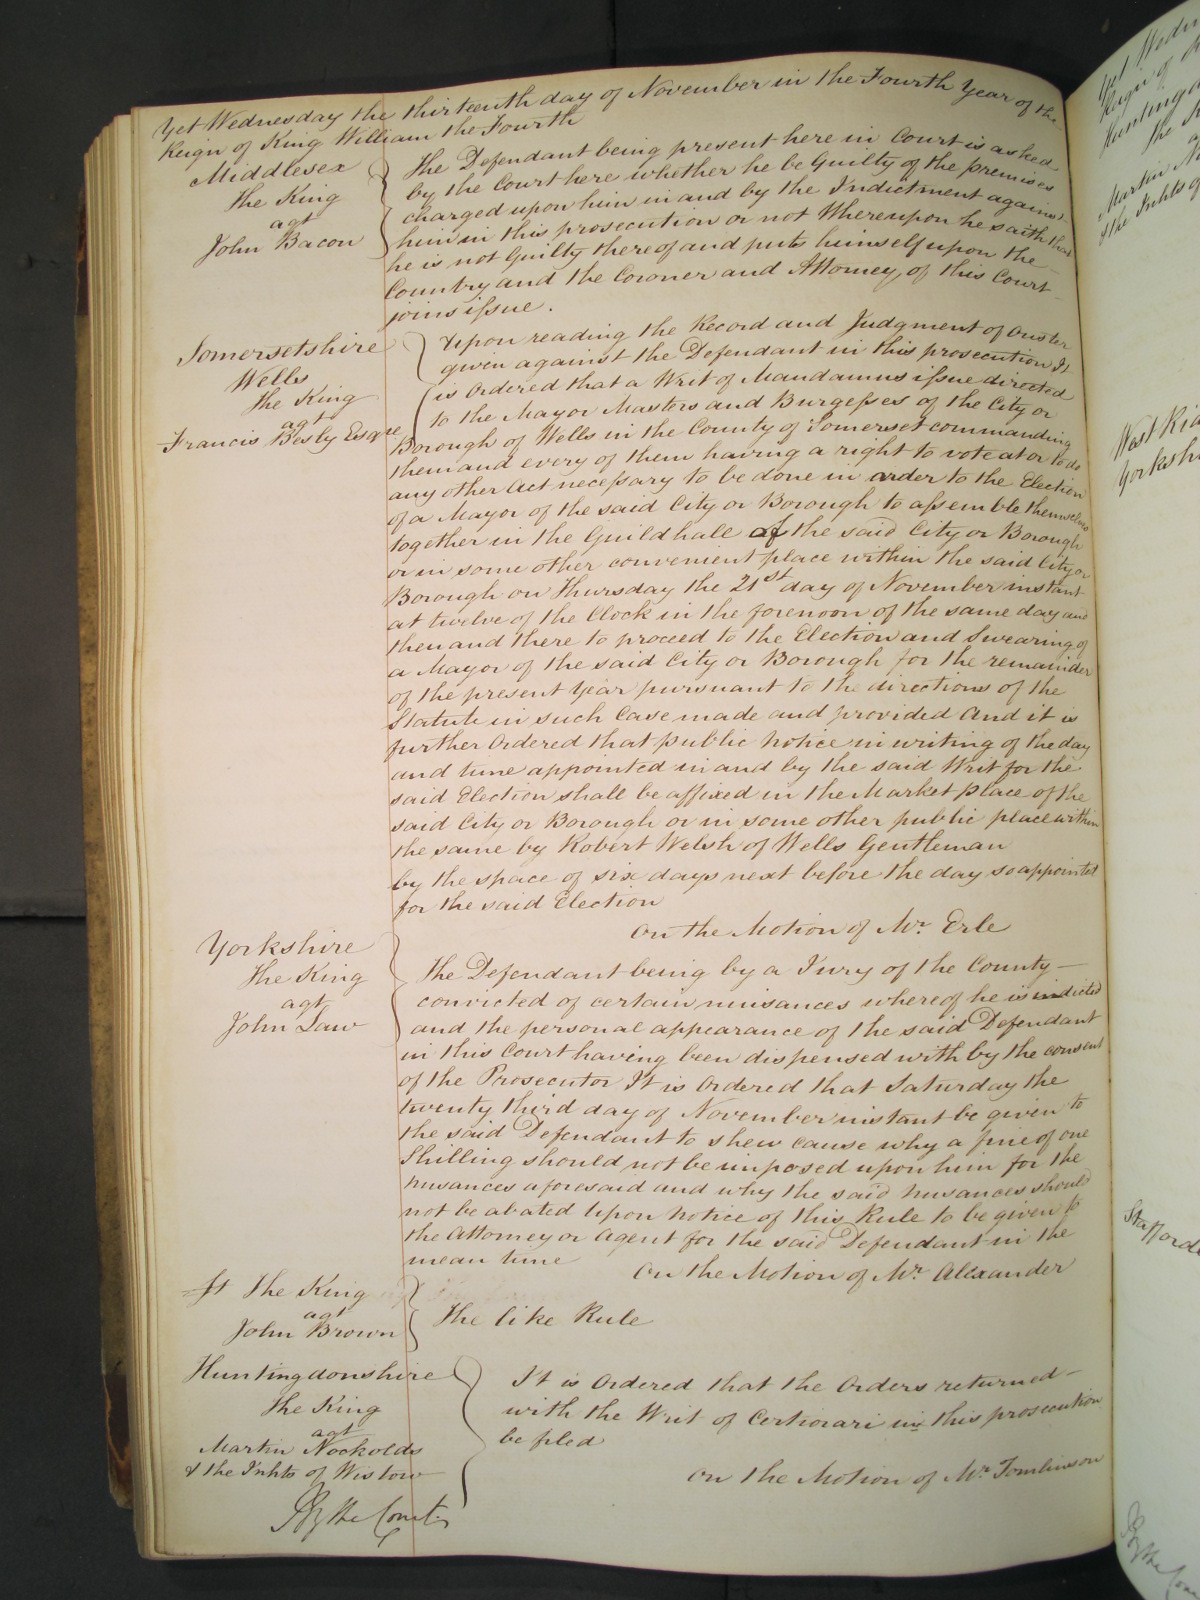 Yet Wednesday the thirteenth day of November in the Fourth Year of the
Reign of King William the Fourth
Middlesex
The King
agt
John Bacon
The Defendant being present here in Court is asked
by the Court here whether he be Guilty of the premises
charged upon him in and by the Indictment against
him in this prosecution or not Whereupon he saith that
he is not Guilty thereof and puts himself upon the
Country and the Coroner and Attorney of this Court
joins issue.
Somersetshire
Wells
The King
agt
Francis Besly Esqre
Upon reading the Record and Judgment of Ouster
given against the Defendant in this prosecution It
is Ordered that a Writ of Mandamus issue directed
to the Mayor Masters and Burgesses of the City or
Borough of Wells in the County of Somerset commanding
them and every of them having a right to vote at or to do
any other Act necessary to be done in order to the Election
of a Mayor of the said City or Borough to assemble themselves
together in the Guildhall of the said City or Borough
or in some other convenient place within the said City or
Borough on Thursday the 21st day of November instant
at twelve of the Clock in the forenoon of the same day and
then and there to proceed to the Election and Swearing of
a Mayor of the said City or Borough for the remainder
of the present Year pursuant to the directions of the
Statute in such Case made and provided And it is
further Ordered that public Notice in writing of the day
and time appointed in and by the said Writ for the
said Election shall be affixed in the Market place of the
said City or Borough or in some other public place within
the same by Robert Welsh of Wells Gentleman
by the space of six days next before the day so appointed
for the said Election
On the Motion of Mr. Erle
Yorkshire
The King
agt
John Law
The Defendant being by a Jury of the County
convicted of certain nuisances whereof he is indicted
and the personal appearance of the said Defendant
in this Court having been dispensed with by the consent
of the Prosecutor It is Ordered that Saturday the
twenty third day of November instant be given to
the said Defendant to shew cause why a fine of one
Shilling should not be imposed upon him for the
nusances aforesaid and why the said nusances should
not be abated Upon notice of this Rule to be given to
the Attorney or Agent for the said Defendant in the
mean time
On the Motion of Mr. Alexander
St The King
agt
John Brown
The like Rule
Huntingdonshire
The King
agt
Martin Nockolds
& the Inhts of Wistow
It is Ordered that the Orders returned
with the Writ of Certiorari in this prosecution
be filed
On the Motion of Mr. Tomlinson
By the Court